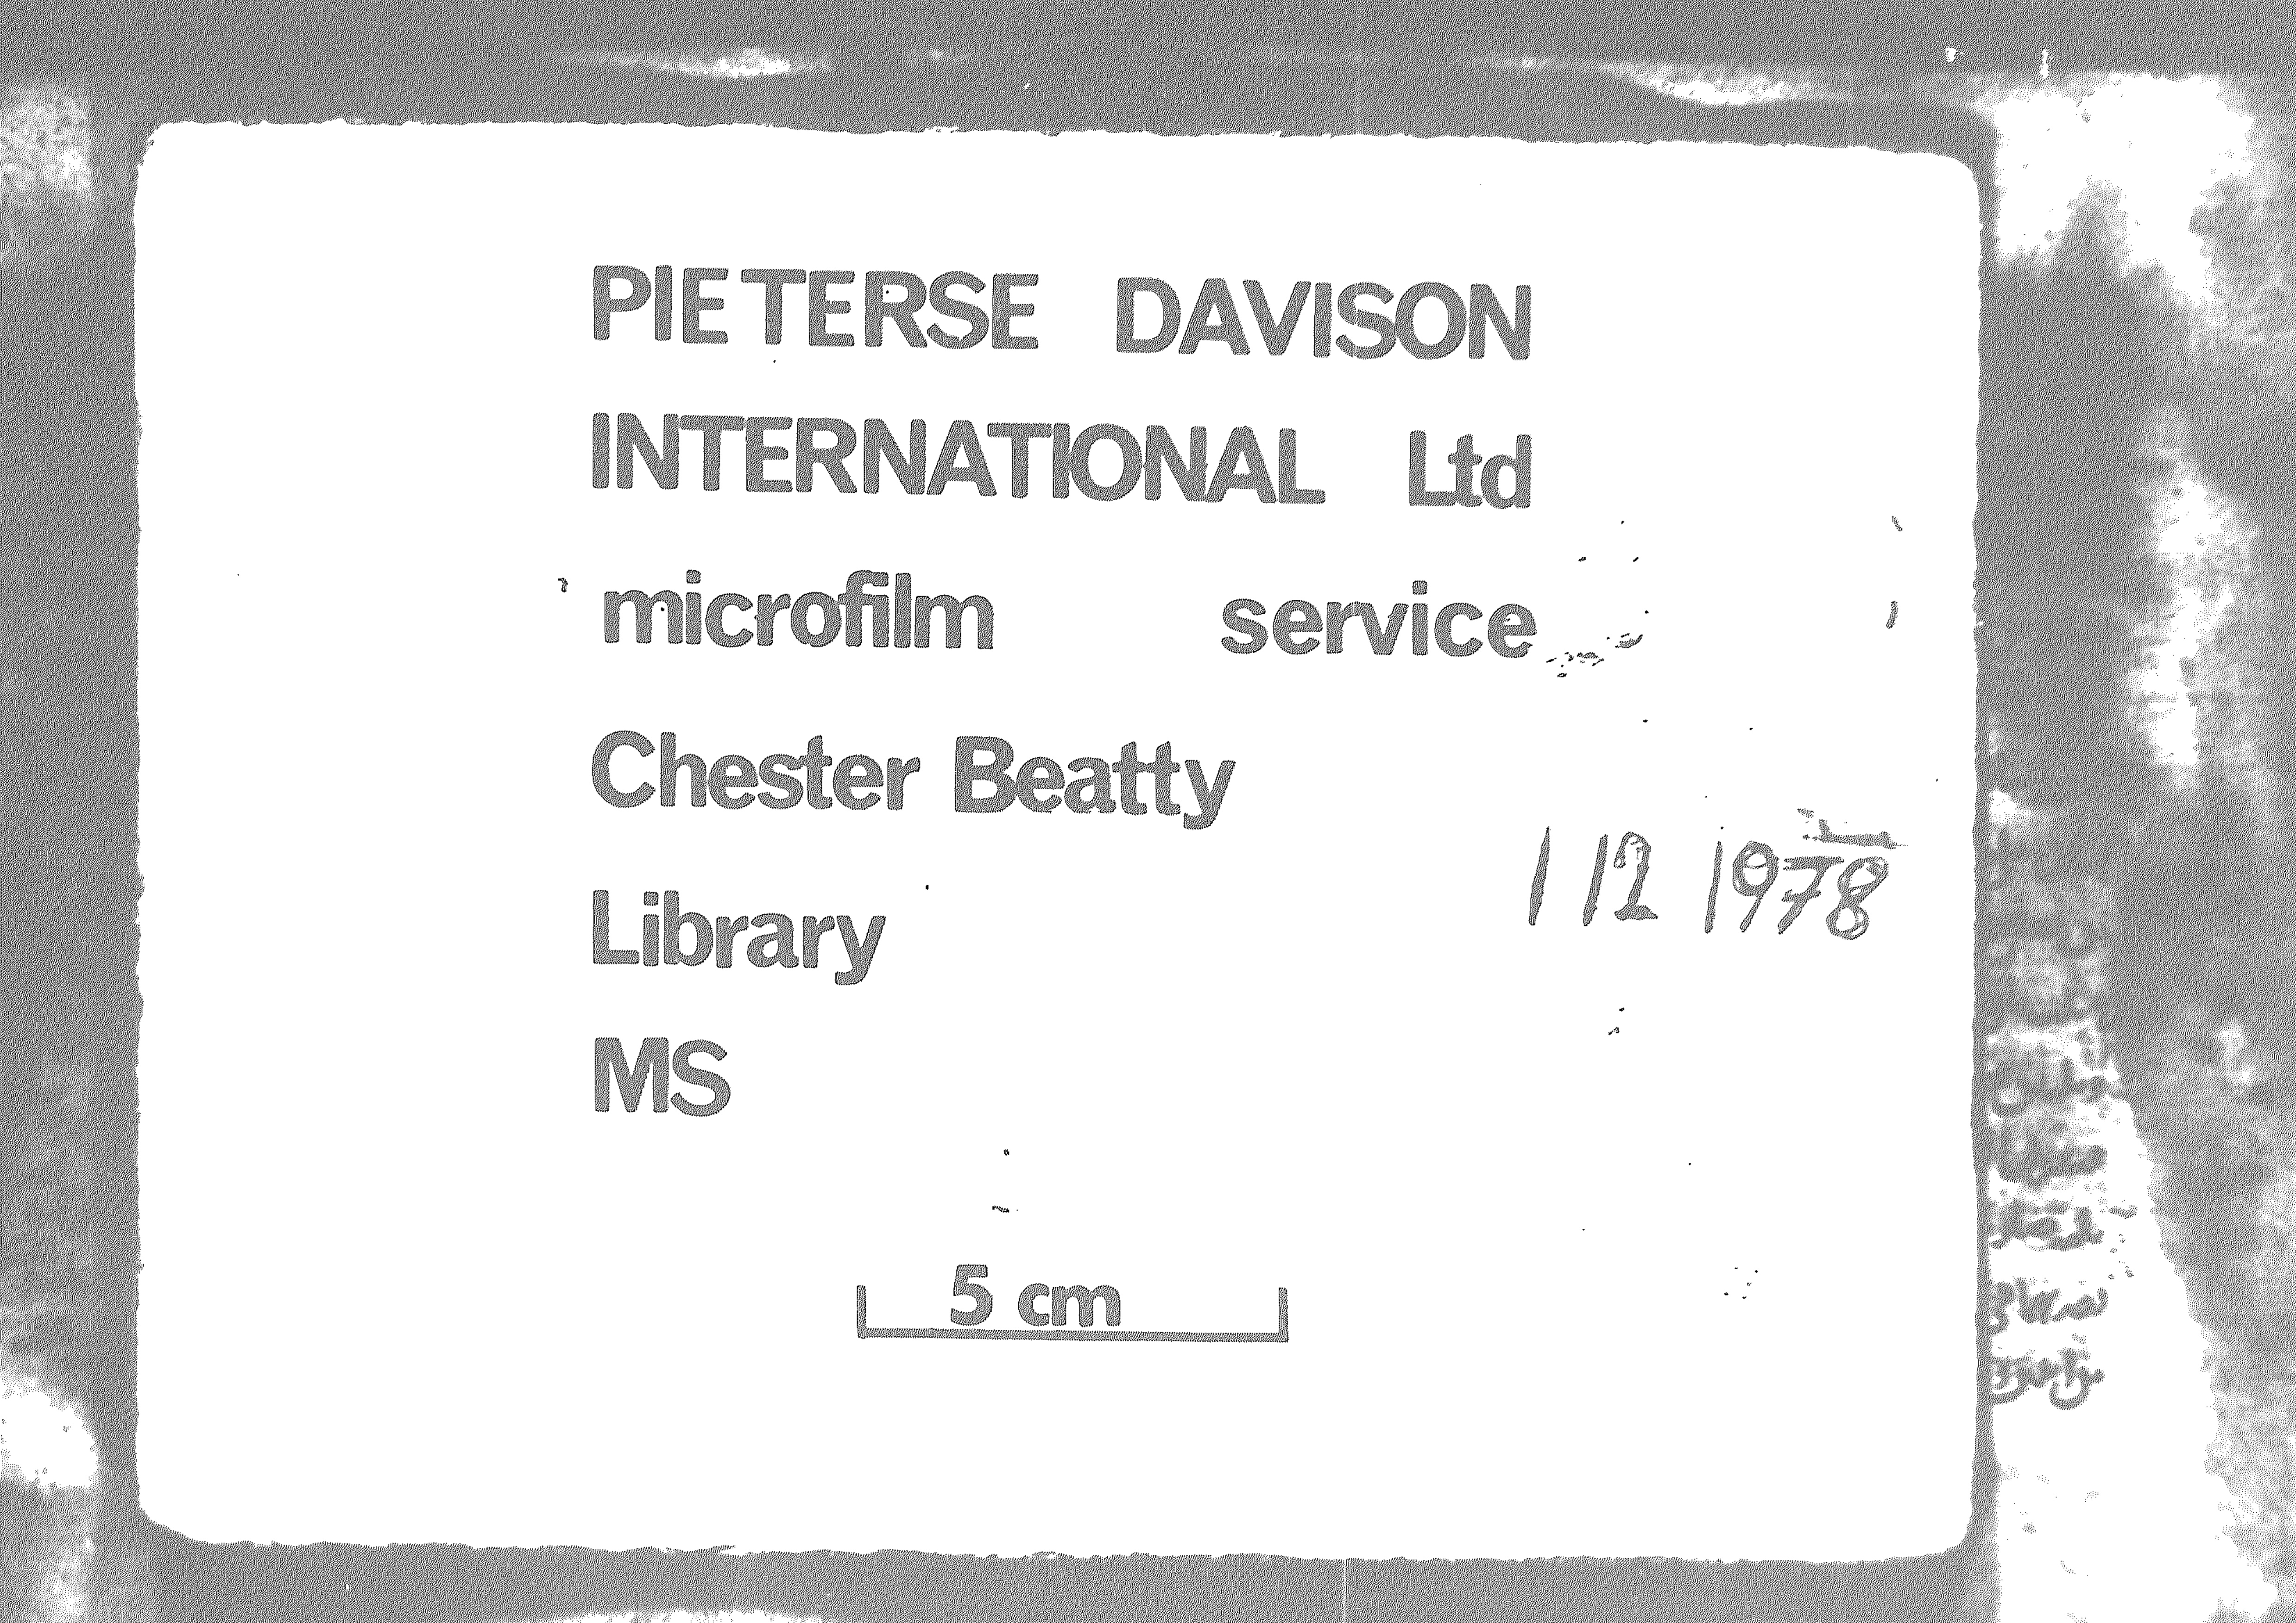 PIETERSE DAVISON
INTERNATIONAL Ltd
microfilm service
Chester Beatty
1 12 1978
Library
MS
5 cm